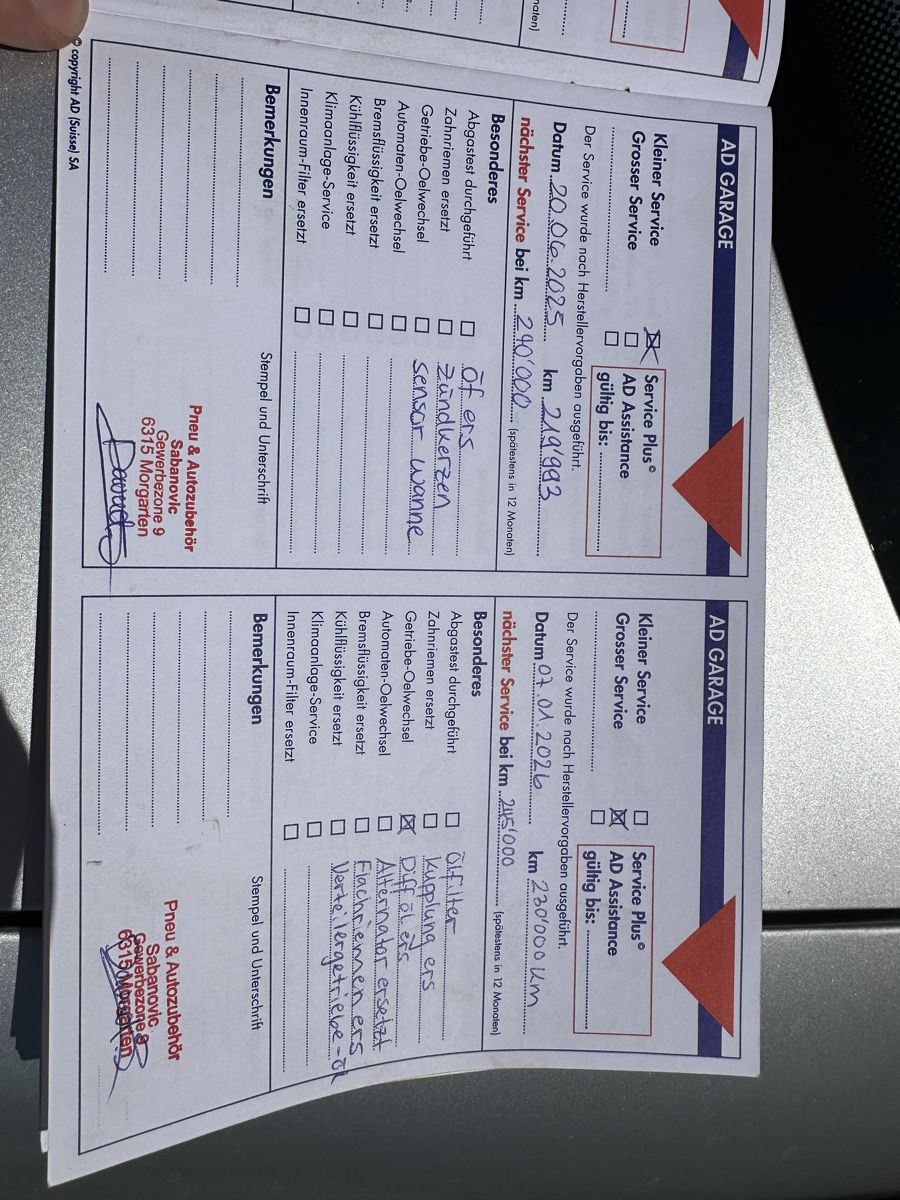 AD GARAGE
Kleiner Service
Grosser Service
Service Plus©
AD Assistance
gültig bis:
Der Service wurde nach Herstellervorgaben ausgeführt.
Datum 20.06.2025 km 219'993
nächster Service bei km 240'000 (spätestens in 12 Monaten)
Besonderes
Abgastest durchgeführt öf ers
Zahnriemen ersetzt zündkerzen
Getriebe-Oelwechsel sensor wanne
Automaten-Oelwechsel
Bremsflüssigkeit ersetzt
Kühlflüssigkeit ersetzt
Klimaanlage-Service
Innenraum-Filter ersetzt
Bemerkungen
Stempel und Unterschrift
Pneu & Autozubehör
Sabanovic
Gewerbezone 9
6315 Morgarten
© copyright AD (Suisse) SA
AD GARAGE
Kleiner Service
Grosser Service
Service Plus©
AD Assistance
gültig bis:
Der Service wurde nach Herstellervorgaben ausgeführt.
Datum 07.01.2026 km 230'000 km
nächster Service bei km 245'000 (spätestens in 12 Monaten)
Besonderes
Abgastest durchgeführt Ölfilter
Zahnriemen ersetzt Kupplung ers
Getriebe-Oelwechsel Diff öl ers
Automaten-Oelwechsel Alternator ersetzt
Bremsflüssigkeit ersetzt Flachriemen ers
Kühlflüssigkeit ersetzt Verteilergetriebe-öl
Klimaanlage-Service
Innenraum-Filter ersetzt
Bemerkungen
Stempel und Unterschrift
Pneu & Autozubehör
Sabanovic
Gewerbezone 9
6315 Morgarten